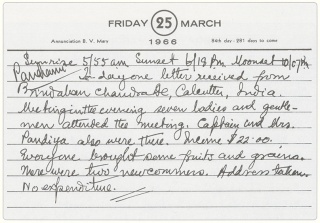 FRIDAY 25 MARCH
Annunciation B. V. Mary 1966 84th day-281 days to come
Sunrise 5/55 am Sunset 6/13 PM Moonset 10/07 PM
Panchami To-day one letter received from
Brindaban Chandra De, Calcutta, India.
Meeting in the evening seven ladies and gentle-
men attended the meeting. Captain and Mrs.
Pandiya also were there. Income $22.00.
Everyone brought some fruits and grains.
There were two newcomers. Address taken.
No expenditure.